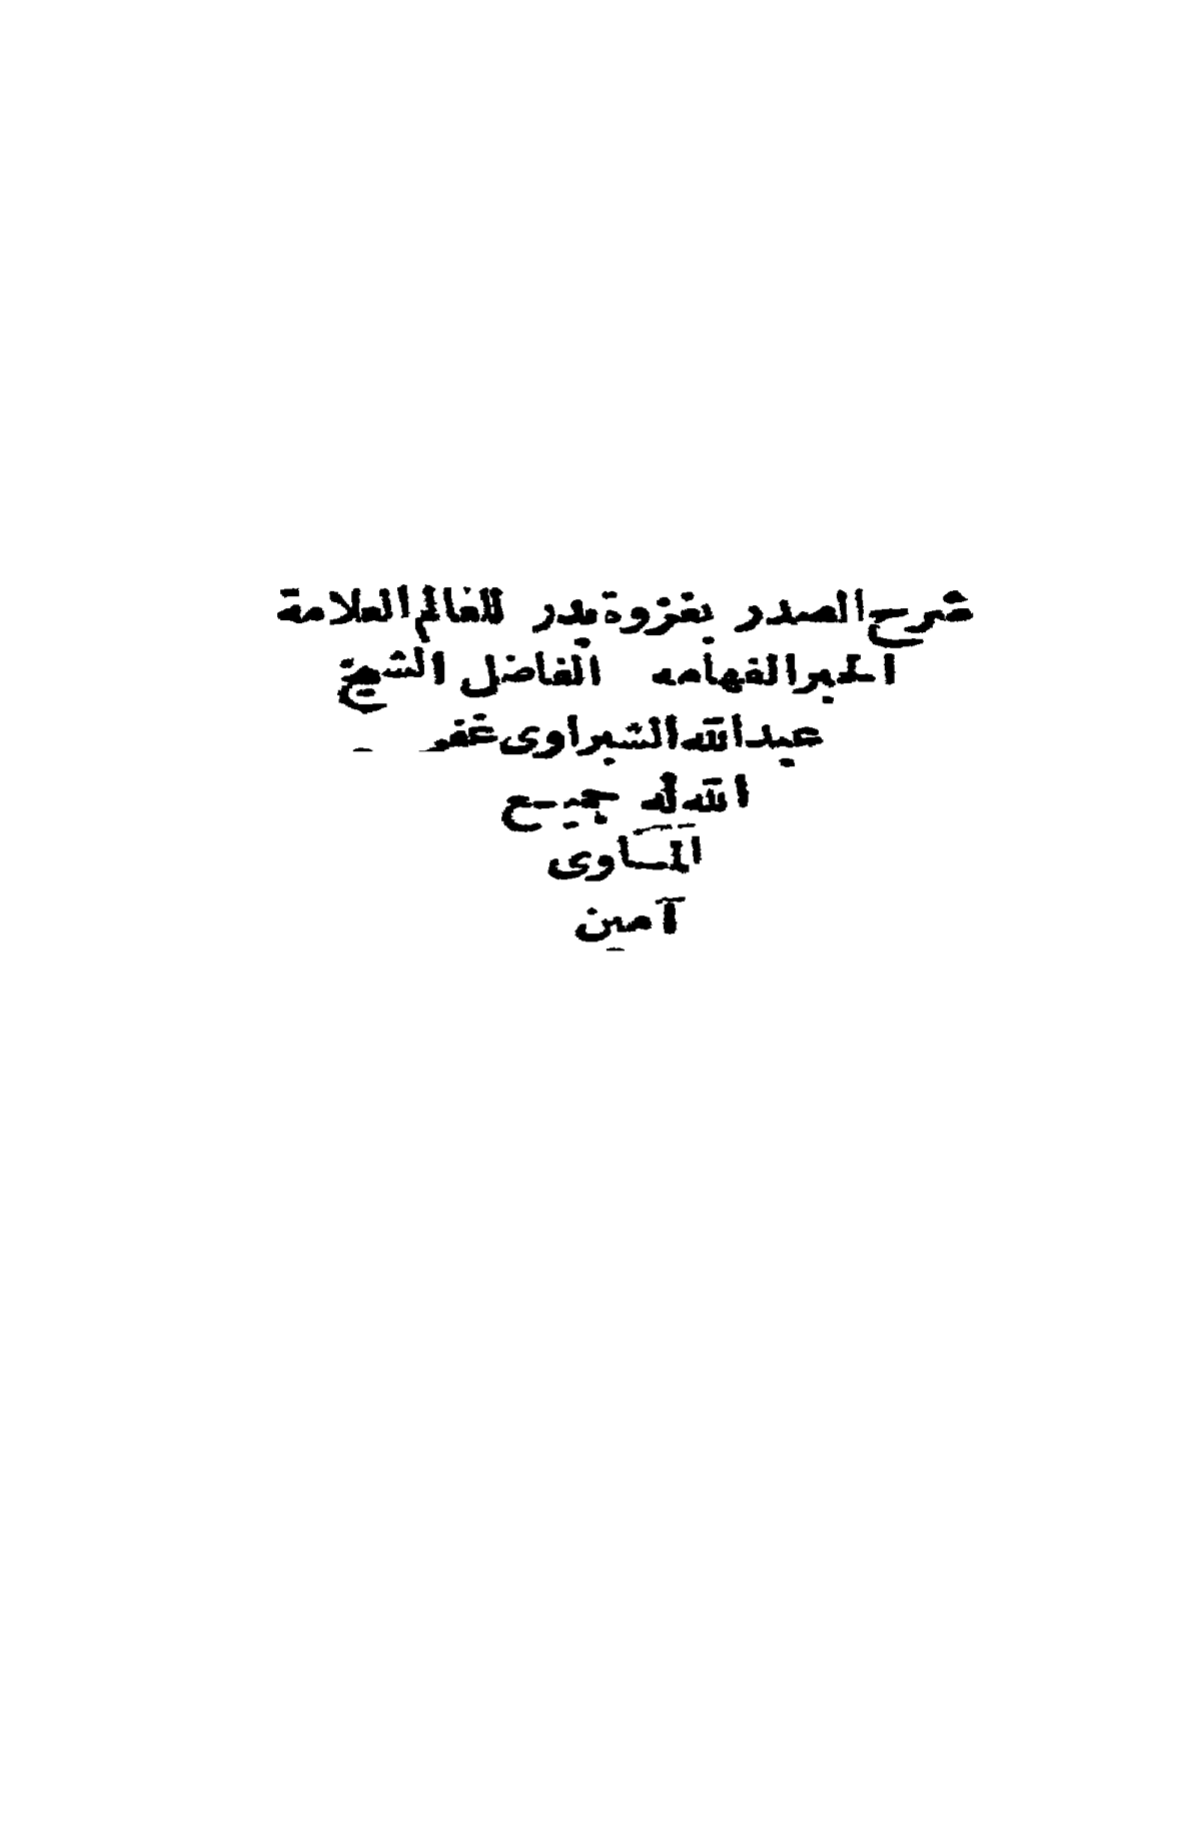 شرح الصدر بغزوة بدر للعالم العلامة
الحبر الفهامه الفاضل الشيخ
عبد الله الشبراوى غفر
الله له جميع
المساوى
آمين